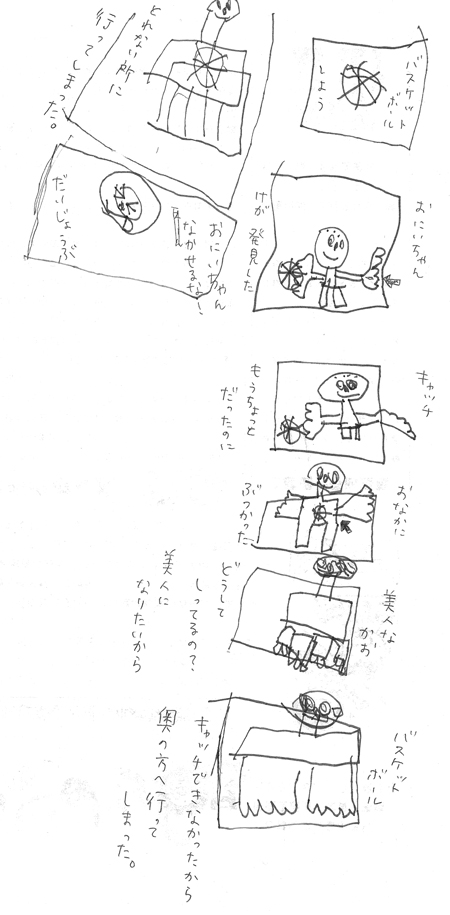 バスケット
ボール
しよう
おにいちゃん
けが 発見した
キャッチ
もうちょっと
だったのに
おなかに
ぶつかった
美人な
かお
どうして
しってるの？
美人に
なりたいから
バスケット
ボール
キャッチできなかったから
奥の方へ行って
しまった。
とれない所に
行ってしまった。
おにいちゃん
なかせるな！
だいじょうぶ